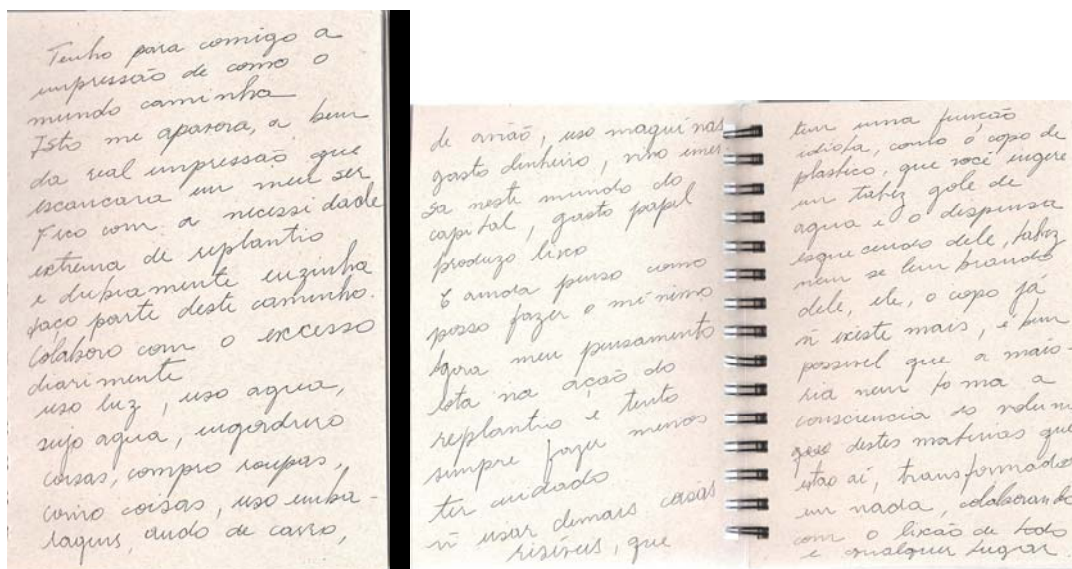 Tenho para comigo a
impressão de como o
mundo caminha
Isto me apavora, a bem
da real impressão que
escancara em meu ser
Fico com a necessidade
extrema de replantio
e dubiamente euzinha
faço parte deste caminho.
Colaboro com o excesso
diarimente
uso luz, uso agua,
sujo agua, engorduro
coisas, compro roupas,
como coisas, uso emba-
lagens, ando de carro,
de avião, uso maquinas
gasto dinheiro, vivo imer
sa neste mundo do
capital, gasto papel
produzo lixo
E ainda penso como
posso fazer o minimo
Agora meu pensamento
esta na ação do
replantio e tento
sempre fazer menos
ter cuidado
ñ usar demais coisas
risiveis, que
tem uma função
idiota, como o copo de
plastico, que você ingere
um talvez gole de
agua e o dispensa
esquecendo dele, talvez
nem se lembrando
dele, ele, o copo já
ñ existe mais, é bem
possivel que a maio-
ria nem toma a
consciencia do volume
destes materias que
estao aí, transformados
em nada, colaborando
com o lixão de todo
e qualquer lugar.